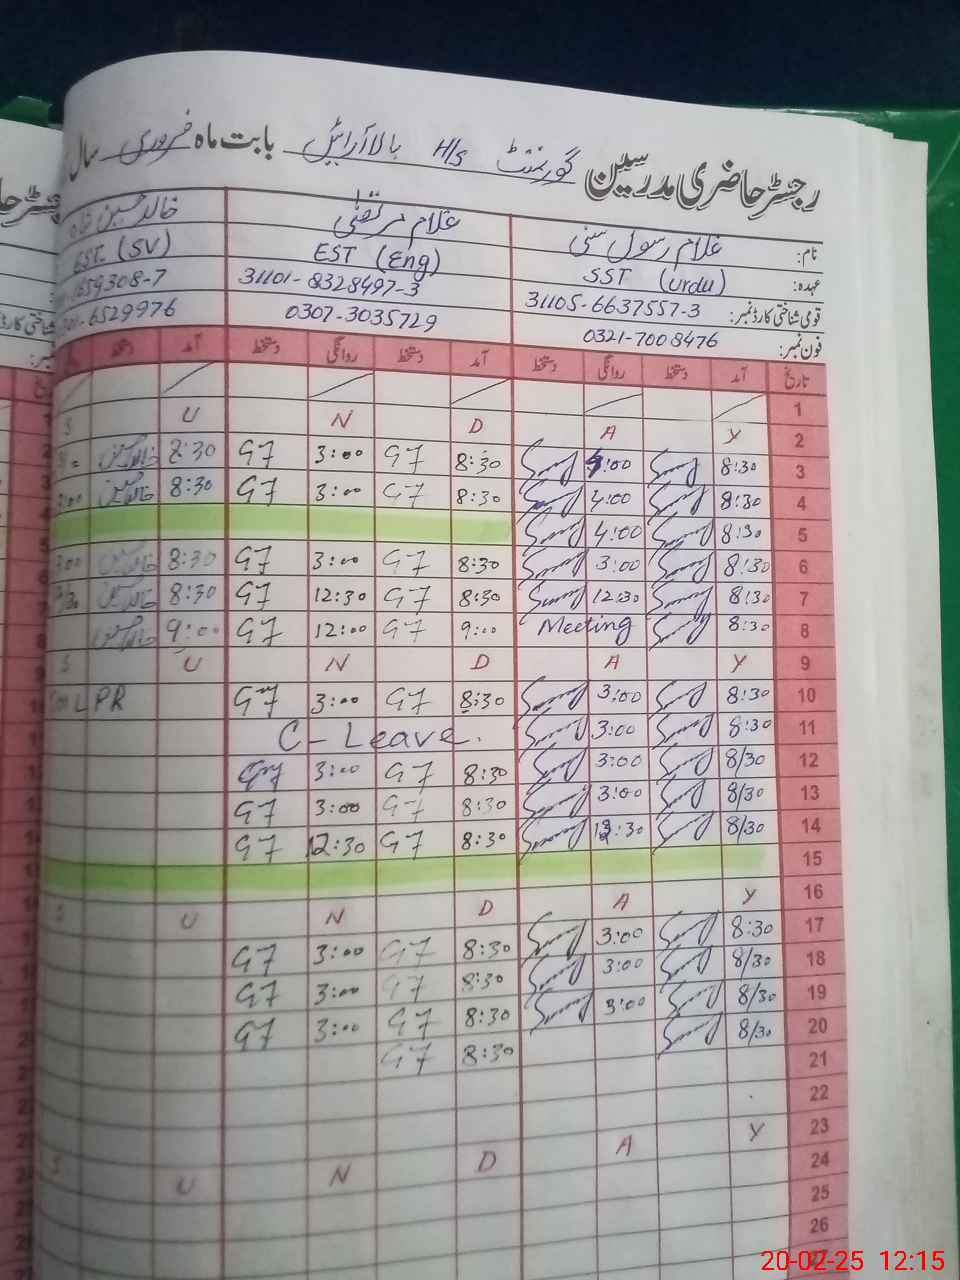 رجسٹر حاضری مدرسین گورنمنٹ H/S بالا آرائیں بابت ماہ فروری سال
نام: غلام رسول سنی غلام مرتضیٰ خالد حسین شاہ
عہدہ: SST (urdu) EST (Eng) EST (SV)
قومی شناختی کارڈ نمبر: 31105-6637557-3 31101-8328497-3 1659308-7
فون نمبر: 0321-7008476 0307-3035729 6529976
تاریخ آمد دستخط روانگی دستخط آمد دستخط روانگی دستخط آمد دستخط
1
2 Y A D N U S
3 8:30 4:00 8:30 G7 3:00 G7 8:30
4 8:30 4:00 8:30 G7 3:00 G7 8:30
5 8:30 4:00
6 8:30 3:00 8:30 G7 3:00 G7 8:30 3:00
7 8:30 12:30 8:30 G7 12:30 G7 8:30
8 8:30 Meeting 9:00 G7 12:00 G7 9:00
9 Y A D N U S
10 8:30 3:00 8:30 G7 3:00 G7 LPR
11 8:30 3:00 C-Leave.
12 8/30 3:00 8:30 G7 3:00
13 8/30 3:00 8:30 G7 3:00 G7
14 8/30 12:30 8:30 G7 12:30 G7
15
16 Y A D N U S
17 8:30 3:00 8:30 G7 3:00 G7
18 8/30 3:00 8:30 G7 3:00 G7
19 8/30 3:00 8:30 G7 3:00 G7
20 8/30 8:30 G7
21
22
23 Y A D N U S
24
25
26
27
20-02-25 12:15